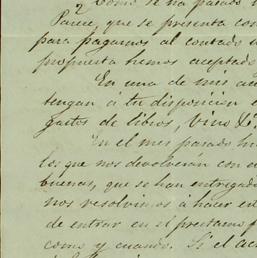 Como se ha pasado
Parece, que se presenta con
para pagarnos al contado
propuesta hemos aceptado
En una de mis
tengan á tu disposicion
gastos de libros, vino &.
En el mes pasado
los que nos devolverán con
buenas, que se han entregado
nos resolvimos á hacer
de entrar en si prestamo
como y cuando. Si el